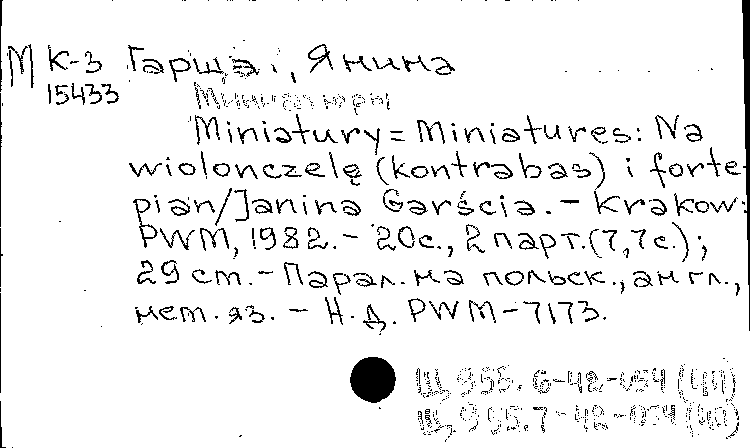 М К-3 Гарща, Янина
15433
Миниатюры
Miniatury = Miniatures: Na
wiolonczelę (kontrabas) i forte-
pian/Janina Garścia. – Krakow:
PWM, 1982. – 20с., 2 парт. (7,7с.);
29 cm. – Парал. на польск., англ.,
нем. яз. – Н.д. PWM-7173.
Щ 955.6-42-054 (4П)
Щ 955.7-42-054 (4П)